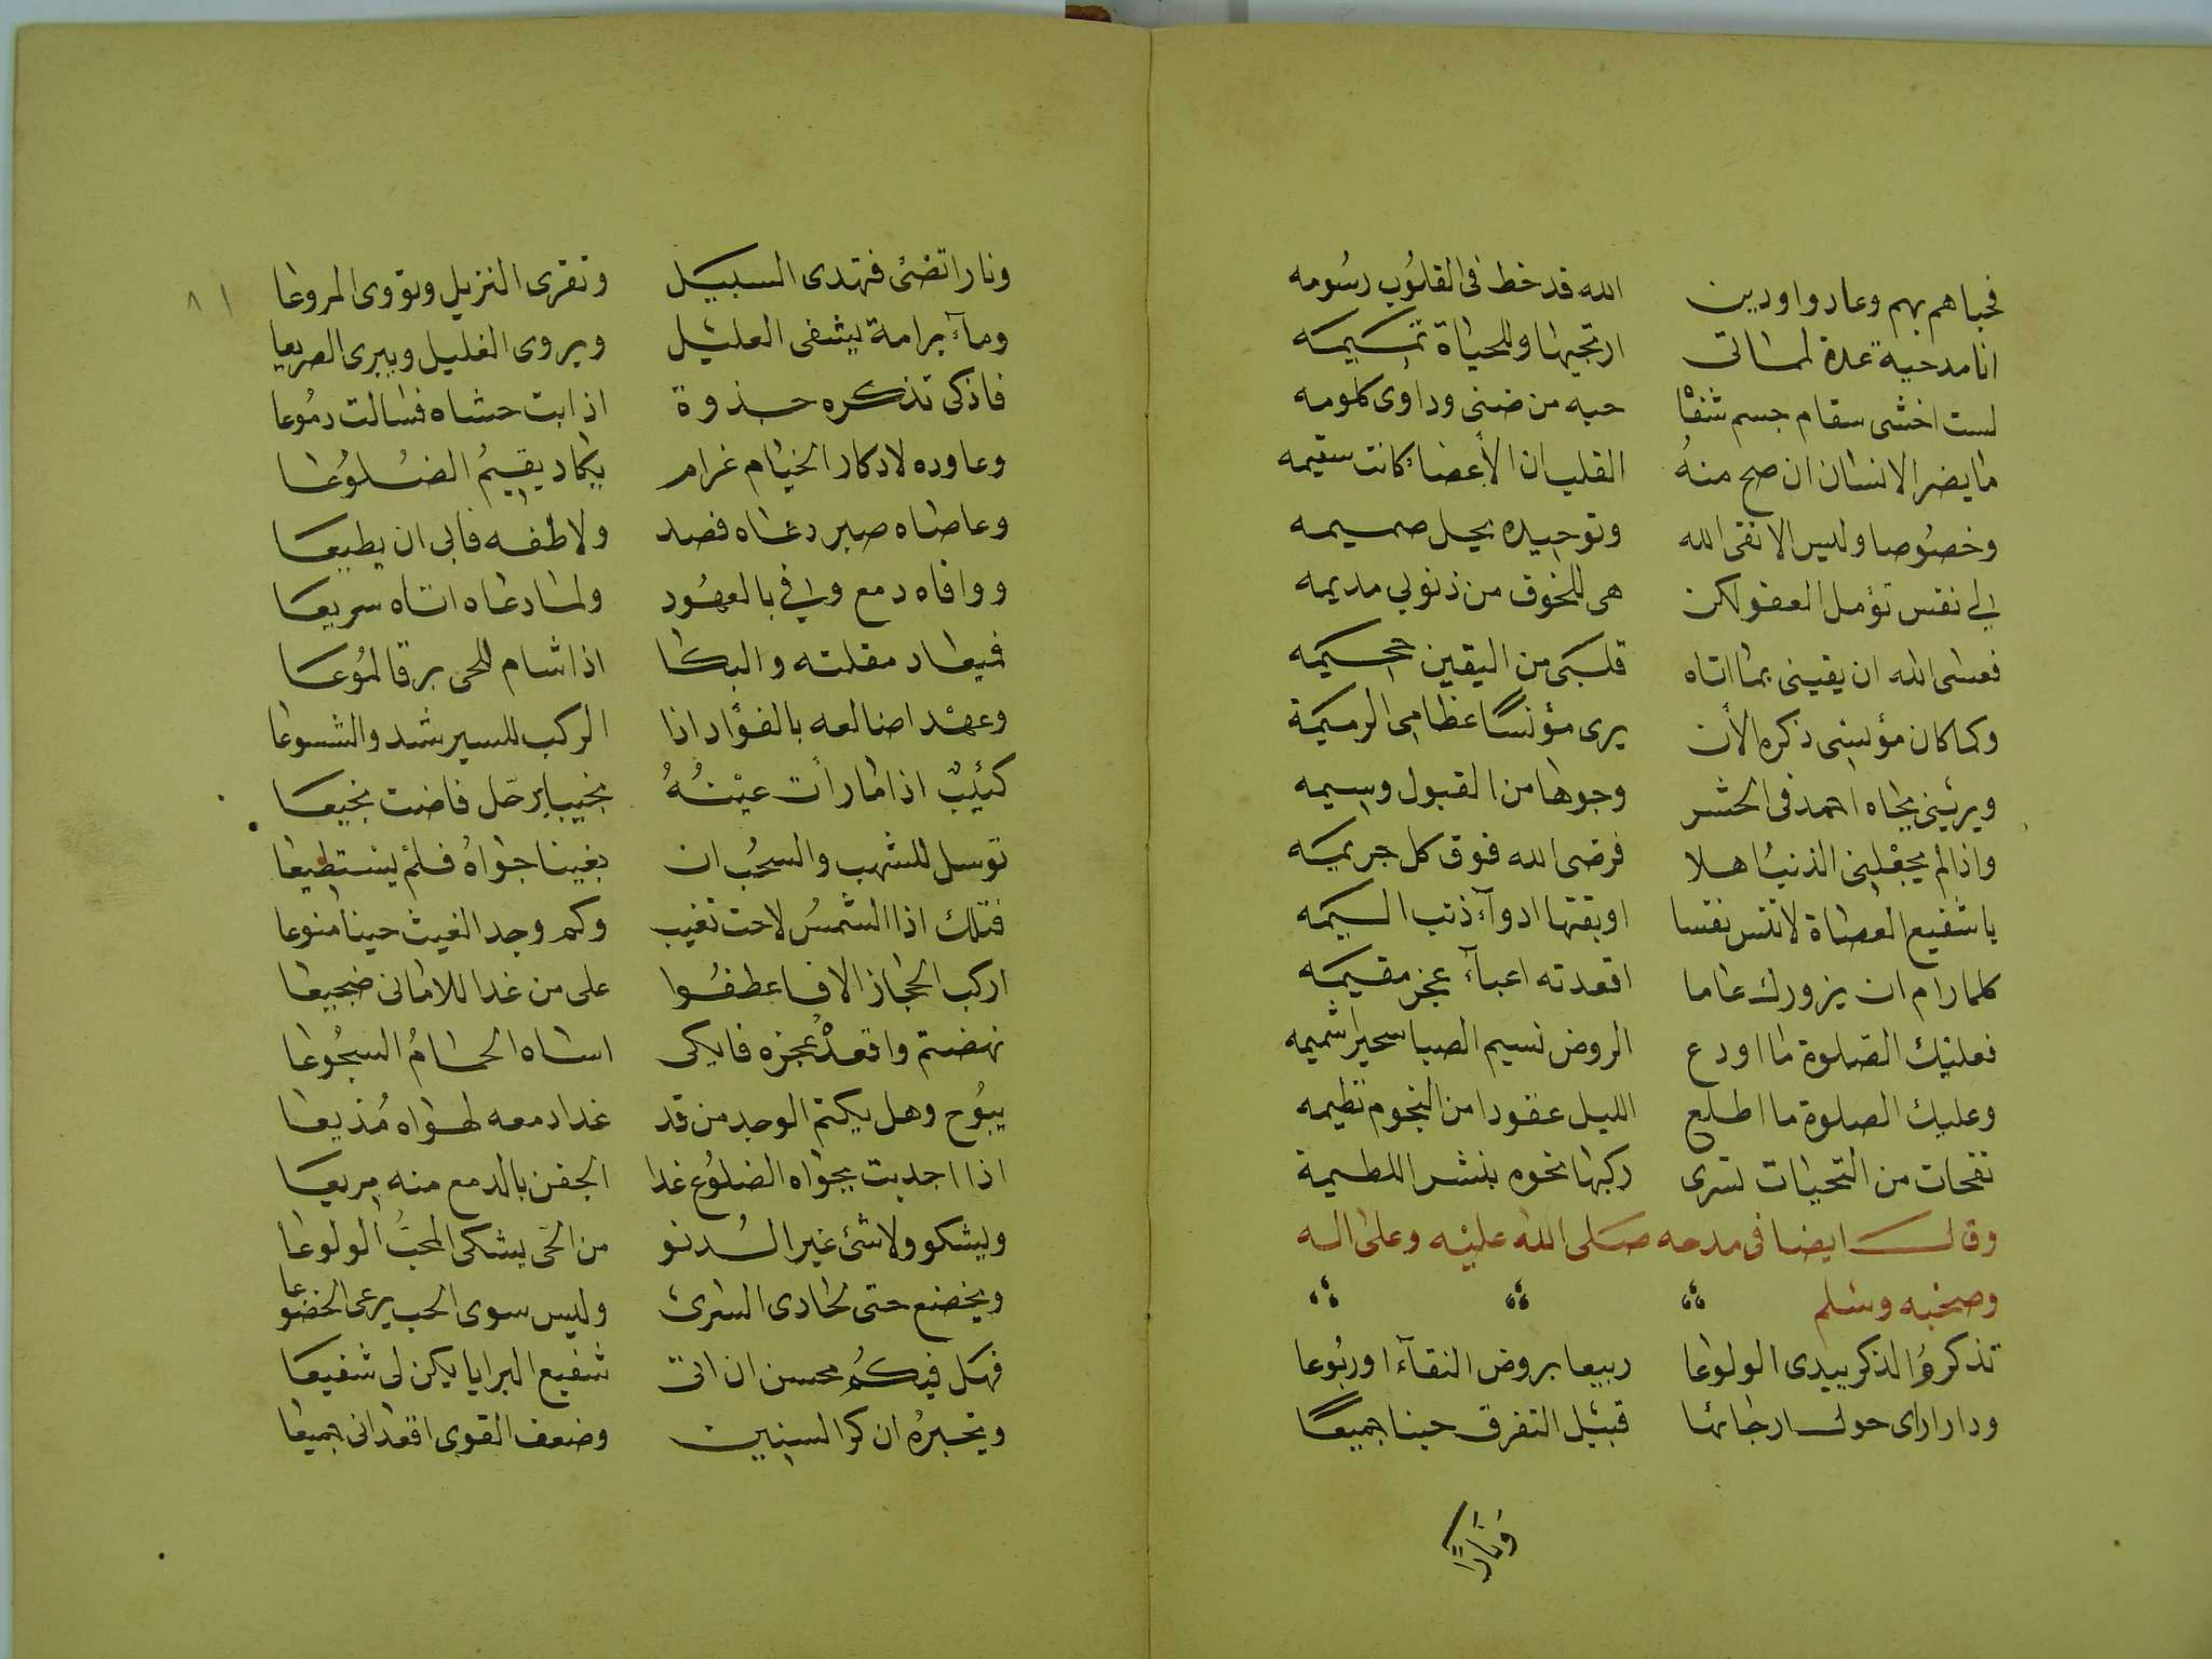 فحباهم بهم وعادوا ودين الله قد خط فى القلوب رسومه
انا مدحيه عدة لمماتى ارتجيها وللحياة تميمه
لست اخشى سقام جسم شفا حبه من ضنى وداوى كلومه
ما يضر الانسان ان صح منه القلب ان الأعضاء كانت سقيمه
وخصوصا وليس الا تقى الله وتوحيده يحل صميمه
لي نفس تؤمل العفو لكن هى للخوف من ذنوبي مديمه
فعسى الله ان يقينى بما اتاه قلبى من اليقين جحيمه
وكما كان مؤنسى ذكره الأن يرى مؤنسًا عظامى الرميمة
ويرينى بجاه احمد فى الحشر وجوها من القبول وسيمه
واذا لم يجعلنى الذنب اهلا فرضى الله فوق كل جريمه
يا شفيع العصاة لا تنس نفسا اوبقتها ادوآء ذنب اليمه
كلما رام ان يزورك عاما اقعدته اعبآء عجز مقيمه
فعليك الصلوة ما اودع الروض نسيم الصبا سحيرا شميمه
وعليك الصلوة ما اطلع الليل عقودا من النجوم نظيمه
نفحات من التحيات تسرى ركبها نحوه بنشر اللطيمة
وقال ايضا فى مدحه صلى الله عليه وعلى اله
وصحبه وسلم
تذكر والذكر يبدى الولوعا ربيعا بروض النقآء اوربوعا
ودارا راى حول ارجائها قبيل التفرق حينا جميعًا
ونارًا
٨١
ونارا تضئ فتهدى السبيل وتقرى النزيل وتؤوى المروعا
ومآء برامة يشفى العليل ويروى الغليل ويبرى الصريعا
فاذكى تذكره جذوة اذابت حشاه فسالت دموعا
وعاوده لادكار الخيام غرام يكاد يقيم الضلوعا
وعاصاه صبر دعاه فصد ولاطفه فابى ان يطيعا
ووافاه دمع وفي بالعهود ولما دعاه اتاه سريعا
فميعاد مقلته والبكا اذا شام للحى برقا لموعا
وعهد اضالعه بالفؤاد اذا الركب للسير شد والشسوعا
كئيب اذا ما رأت عينه نجيبا برحل فاضت نجيعا
توسل للشهب والسحب ان بغيبا جواه فلم يستطيعا
فتلك اذا الشمس لاحت تغيب وكم وجد الغيث حينا منوعا
اركب الحجاز الا فاعطفوا على من غدا للامانى ضجيعا
نهضتم واقعد عجزه فابكى اساه الحمام السجوعا
يبوح وهل يكتم الوجد من قد غدا دمعه لهواه مذيعا
اذا اجدبت بجواه الضلوع غدا الجفن بالدمع منه مريعا
ويشكو ولا شئ غير الدنو من الحى يشكى المحب الولوعا
ويخضع حتى لحادى السرى وليس سوى الحب يرعى الخضوعا
فهل فيكم محسن ان اتى شفيع البرايا يكن لى شفيعا
ويخبره ان كر السنين وضعف القوى اقعدانى جميعا